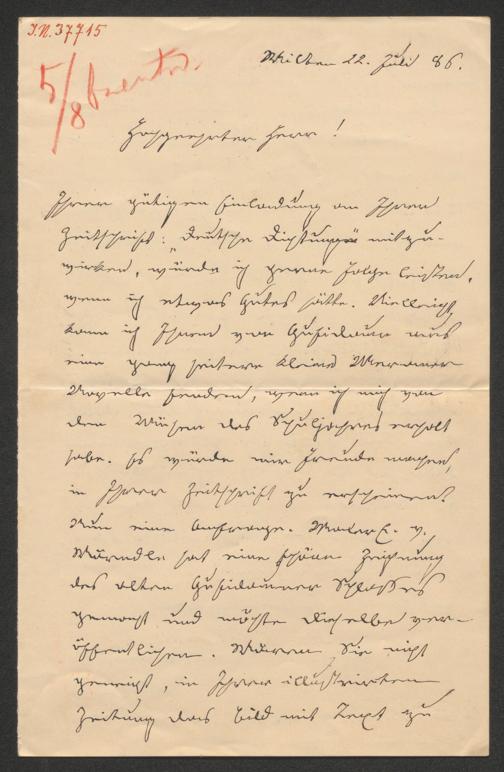 I.N. 37715
5/8
Wilten 22. Juli 86.
Hochgeehrter Herr!
Ihrer gütigen Einladung an Ihrer
Zeitschrift: „Deutsche Dichtung" mitzu-
wirken, würde ich gerne Folge leisten,
wenn ich etwas Gutes hätte. Vielleicht
kann ich Ihnen von Gufidaun aus
eine ganz heitere kleine Meraner
Novelle senden, wenn ich mich von
den Mühen des Schuljahres erholt
habe. Es würde mir Freude machen,
in Ihrer Zeitschrift zu erscheinen.
Nun eine Anfrage. Maler E. v.
Wörndle hat eine schöne Zeichnung
des alten Gufidauner Schlosses
gemacht und möchte dieselbe ver-
öffentlichen. Wären Sie nicht
geneigt, in Ihrer illustrirten
Zeitung das Bild mit Text zu